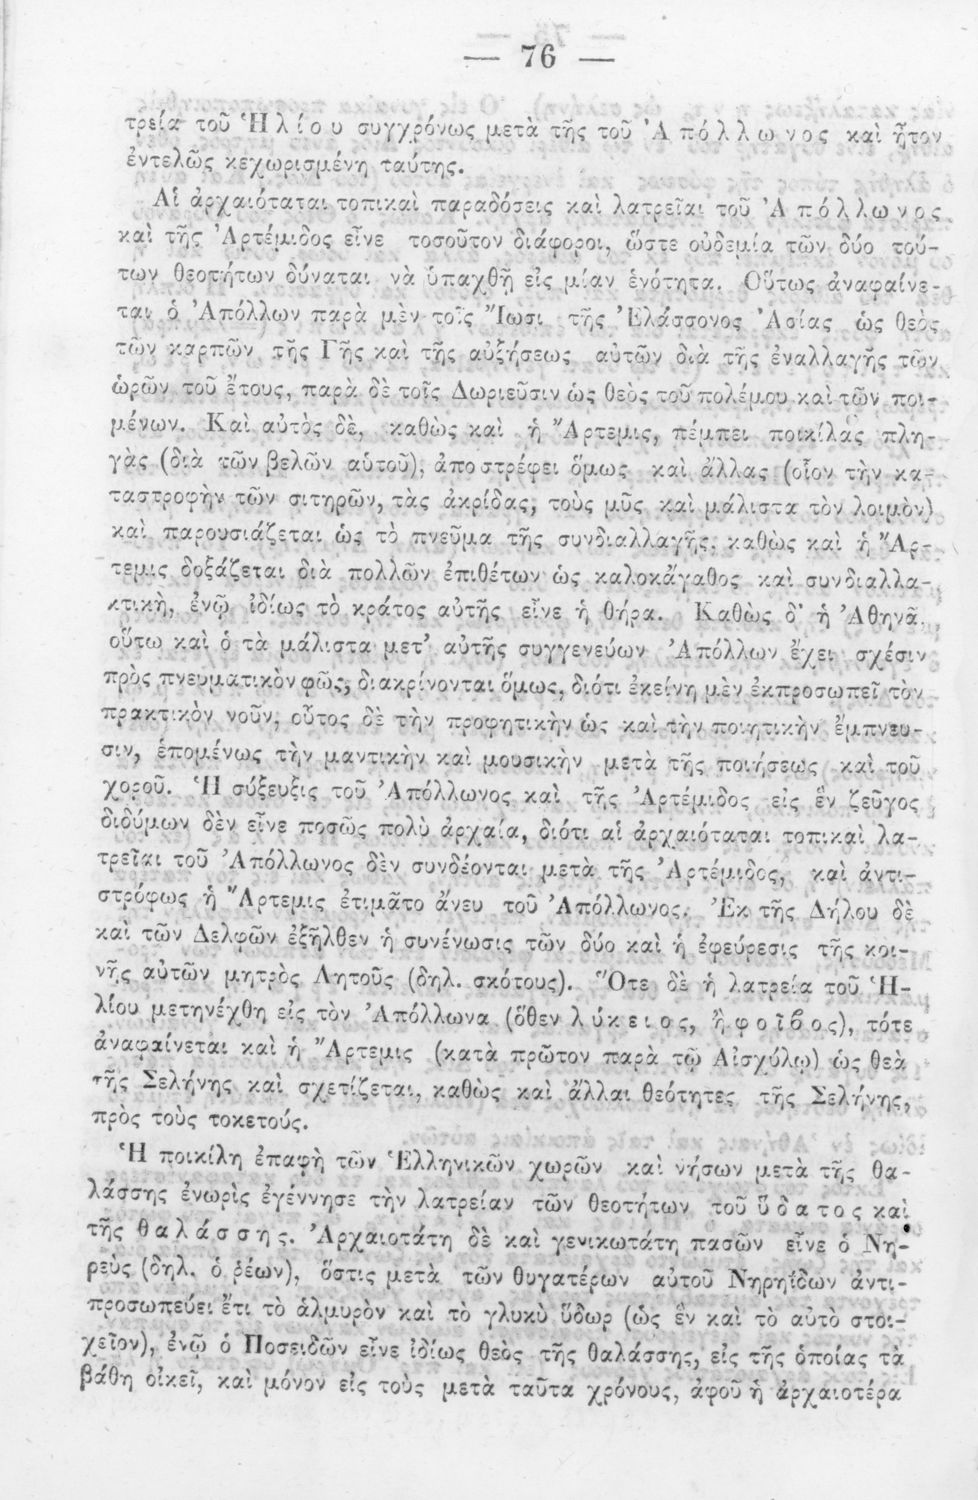 — 76 —
τρεία τοῦ Ἡλίου συγχρόνως μετὰ τῆς τοῦ Ἀπόλλωνος καὶ ἦτον
ἐντελῶς κεχωρισμένη ταύτης.
Αἱ ἀρχαιόταται τοπικαὶ παραδόσεις καὶ λατρεῖαι τοῦ Ἀπόλλωνος
καὶ τῆς Ἀρτέμιδος εἶνε τοσοῦτον διάφοροι, ὥστε οὐδεμία τῶν δύο τού-
των θεοτήτων δύναται νὰ ὑπαχθῇ εἰς μίαν ἑνότητα. Οὕτως ἀναφαίνε-
ται ὁ Ἀπόλλων παρὰ μὲν τοῖς Ἴωσι τῆς Ἐλάσσονος Ἀσίας ὡς θεὸς
τῶν καρπῶν τῆς Γῆς καὶ τῆς αὐξήσεως αὐτῶν διὰ τῆς ἐναλλαγῆς τῶν
ὡρῶν τοῦ ἔτους, παρὰ δὲ τοῖς Δωριεῦσιν ὡς θεὸς τοῦ πολέμου καὶ τῶν ποι-
μένων. Καὶ αὐτὸς δὲ, καθὼς καὶ ἡ Ἄρτεμις, πέμπει ποικίλας πλη-
γὰς (διὰ τῶν βελῶν αὑτοῦ), ἀποστρέφει ὅμως καὶ ἄλλας (οἷον τὴν κα-
ταστροφὴν τῶν σιτηρῶν, τὰς ἀκρίδας, τοὺς μῦς καὶ μάλιστα τὸν λοιμὸν)
καὶ παρουσιάζεται ὡς τὸ πνεῦμα τῆς συνδιαλλαγῆς, καθὼς καὶ ἡ Ἄρ-
τεμις δοξάζεται διὰ πολλῶν ἐπιθέτων ὡς καλοκἄγαθος καὶ συνδιαλλα-
κτικὴ, ἐνῷ ἰδίως τὸ κράτος αὐτῆς εἶνε ἡ θήρα. Καθὼς δ' ἡ Ἀθηνᾶ,
οὕτω καὶ ὁ τὰ μάλιστα μετ' αὐτῆς συγγενεύων Ἀπόλλων ἔχει σχέσιν
πρὸς πνευματικὸν φῶς, διακρίνονται ὅμως, διότι ἐκείνη μὲν ἐκπροσωπεῖ τὸν
πρακτικὸν νοῦν, οὗτος δὲ τὴν προφητικὴν ὡς καὶ τὴν ποιητικὴν ἔμπνευ-
σιν, ἑπομένως τὴν μαντικὴν καὶ μουσικὴν μετὰ τῆς ποιήσεως καὶ τοῦ
χοροῦ. Ἡ σύζευξις τοῦ Ἀπόλλωνος καὶ τῆς Ἀρτέμιδος εἰς ἓν ζεῦγος
διδύμων δὲν εἶνε ποσῶς πολὺ ἀρχαία, διότι αἱ ἀρχαιόταται τοπικαὶ λα-
τρεῖαι τοῦ Ἀπόλλωνος δὲν συνδέονται μετὰ τῆς Ἀρτέμιδος, καὶ ἀντι-
στρόφως ἡ Ἄρτεμις ἐτιμᾶτο ἄνευ τοῦ Ἀπόλλωνος. Ἐκ τῆς Δήλου δὲ
καὶ τῶν Δελφῶν ἐξῆλθεν ἡ συνένωσις τῶν δύο καὶ ἡ ἐφεύρεσις τῆς κοι-
νῆς αὐτῶν μητρὸς Λητοῦς (δηλ. σκότους). Ὅτε δὲ ἡ λατρεία τοῦ Ἡ-
λίου μετηνέχθη εἰς τὸν Ἀπόλλωνα (ὅθεν λύκειος, ἢ φοῖβος), τότε
ἀναφαίνεται καὶ ἡ Ἄρτεμις (κατὰ πρῶτον παρὰ τῷ Αἰσχύλῳ) ὡς θεὰ
τῆς Σελήνης καὶ σχετίζεται, καθὼς καὶ ἄλλαι θεότητες τῆς Σελήνης,
πρὸς τοὺς τοκετούς.
Ἡ ποικίλη ἐπαφὴ τῶν Ἑλληνικῶν χωρῶν καὶ νήσων μετὰ τῆς θα-
λάσσης ἐνωρὶς ἐγέννησε τὴν λατρείαν τῶν θεοτήτων τοῦ ὕδατος καὶ
τῆς θαλάσσης. Ἀρχαιοτάτη δὲ καὶ γενικωτάτη πασῶν εἶνε ὁ Νη-
ρεὺς (δηλ. ὁ ῥέων), ὅστις μετὰ τῶν θυγατέρων αὐτοῦ Νηρηΐδων ἀντι-
προσωπεύει ἔτι τὸ ἁλμυρὸν καὶ τὸ γλυκὺ ὕδωρ (ὡς ἓν καὶ τὸ αὐτὸ στοι-
χεῖον), ἐνῷ ὁ Ποσειδῶν εἶνε ἰδίως θεὸς τῆς θαλάσσης, εἰς τῆς ὁποίας τὰ
βάθη οἰκεῖ, καὶ μόνον εἰς τοὺς μετὰ ταῦτα χρόνους, ἀφοῦ ἡ ἀρχαιοτέρα